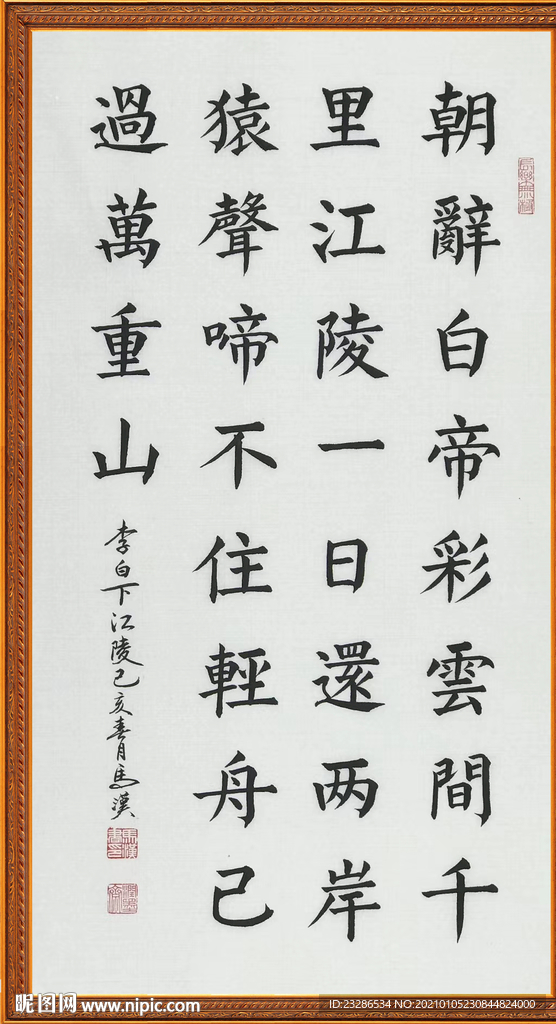 朝辭白帝彩雲間千
里江陵一日還两岸
猿聲啼不住輕舟已
過萬重山
李白下江陵己亥春月馬漢
昵图网 www.nipic.com
ID:23286534 NO:20210105230844824000